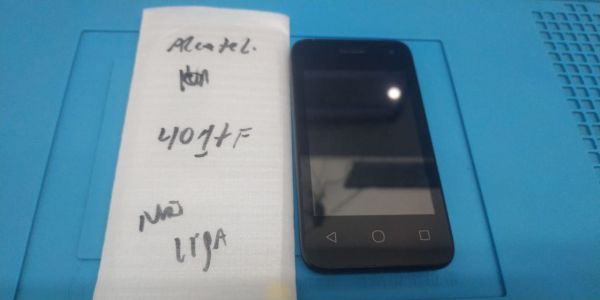 Alcatel.
4017F
Não
liga